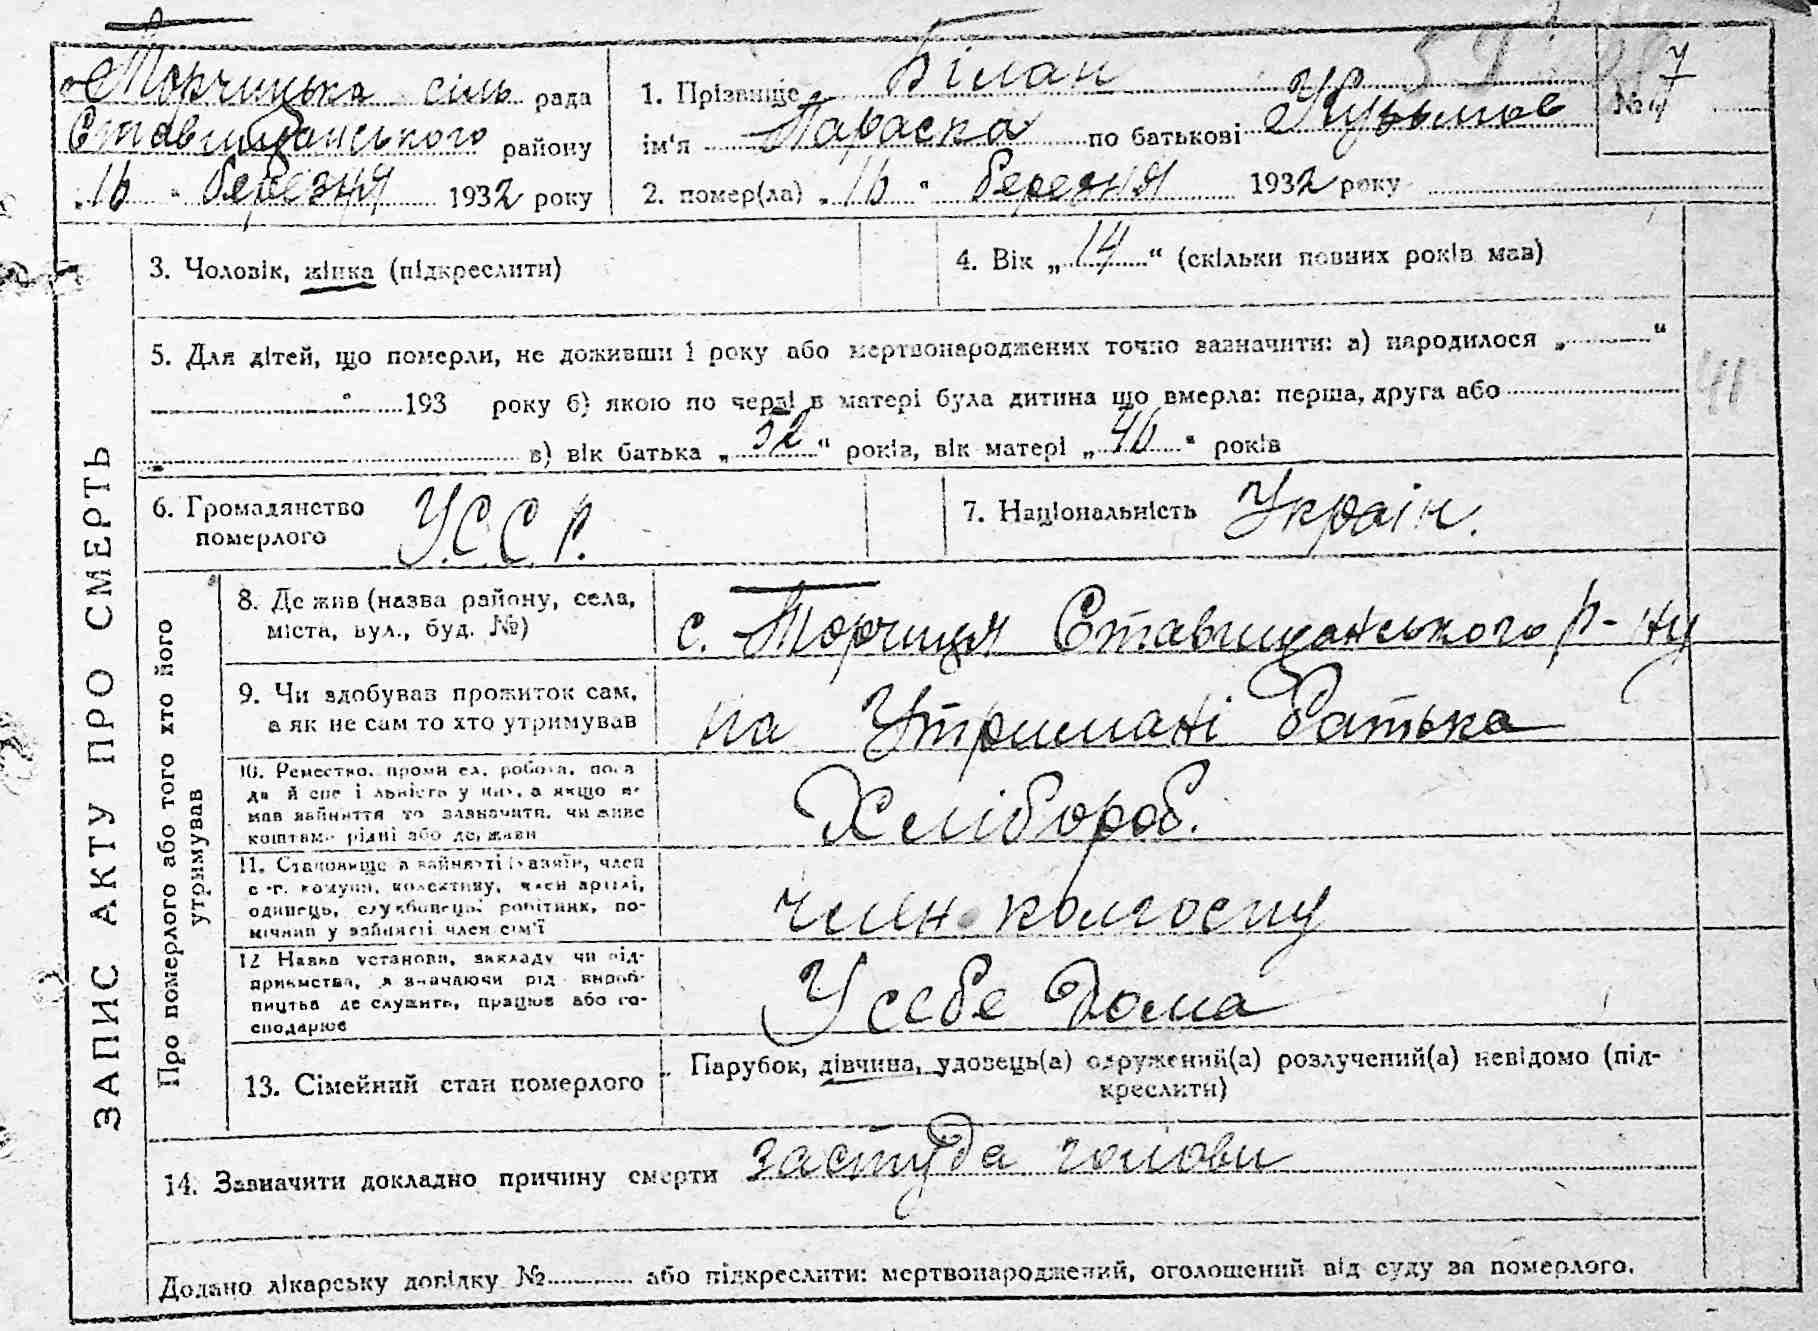 Торчицька сіль рада
Ставищанського району
„16" березня 1932 року
1. Прізвище Білан
ім'я Параска по батькові Кузьмов
№ 7
2. помер(ла) „16" березня 1932 року
ЗАПИС АКТУ ПРО СМЕРТЬ
3. Чоловік, жінка (підкреслити)
4. Вік „14" (скільки повних років мав)
5. Для дітей, що померли, не доживши 1 року або мертвонароджених точно зазначити: а) народилося „ "
193 року б) якою по черзі в матері була дитина що вмерла: перша, друга або
в) вік батька „52" років, вік матері „46" років
41
6. Громадянство
померлого
У.С.С.Р.
7. Національність Україн.
Про померлого або того хто його
утримував
8. Де жив (назва району, села,
міста, вул., буд. №)
с. Торчиця Ставищанського р-ну
9. Чи здобував прожиток сам,
а як не сам то хто утримував
на Утримані батька
10. Ремество, промисел, робота, поса-
да й спеціяльність у них, а якщо не
мав зайняття то зазначити, чи живе
коштами рідні або держави
Хлібороб.
11. Становище в зайнятті (хазяїн, член
с-г. комуни, колективу, член артілі,
одинець, службовець, робітник, по-
мічний у зайнятті член сім'ї
член колгоспу
12 Назва установи, закладу чи під-
приємства, зазначаючи рід вироб-
ництва де служить, працює або го-
сподарює
У себе Дома
13. Сімейний стан померлого
Парубок, дівчина, удовець(а) одружений(а) розлучений(а) невідомо (під-
креслити)
14. Зазначити докладно причину смерти застуда голови
Додано лікарську довідку № або підкреслити: мертвонароджений, оголошений від суду за померлого.